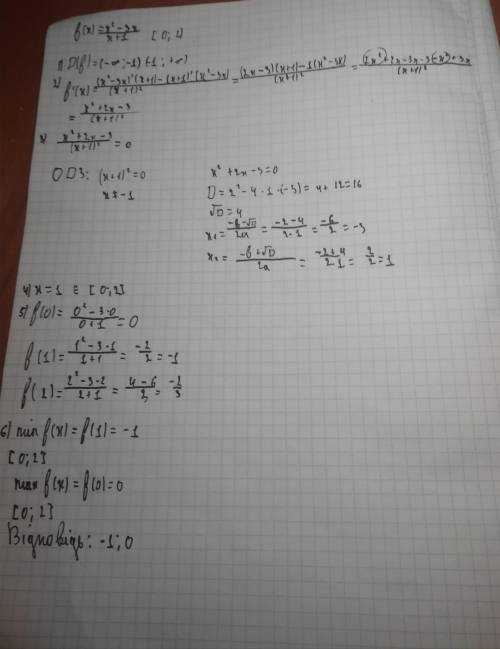 f(x) = x² - 3x / x + 1 [0; 2]
1) D(f) = (-∞; -1) (-1; +∞)
2) f'(x) = (x² - 3x)'(x+1) - (x+1)'(x² - 3x) / (x+1)² = (2x - 3)(x+1) - 1(x² - 3x) / (x+1)² = 2x² + 2x - 3x - 3 - x² + 3x / (x+1)²
= x² + 2x - 3 / (x+1)²
3) x² + 2x - 3 / (x+1)² = 0
ОДЗ: (x+1)² = 0
x ≠ -1
x² + 2x - 3 = 0
D = 2² - 4 · 1 · (-3) = 4 + 12 = 16
√D = 4
x₁ = -b - √D / 2a = -2 - 4 / 2·1 = -6 / 2 = -3
x₂ = -b + √D / 2a = -2 + 4 / 2·1 = 2 / 2 = 1
4) x = 1 ∈ [0; 2]
5) f(0) = 0² - 3·0 / 0 + 1 = 0
f(1) = 1² - 3·1 / 1 + 1 = -2 / 2 = -1
f(2) = 2² - 3·2 / 2 + 1 = 4 - 6 / 3 = -2 / 3
6) min f(x) = f(1) = -1
[0; 2]
max f(x) = f(0) = 0
[0; 2]
Відповідь: -1; 0